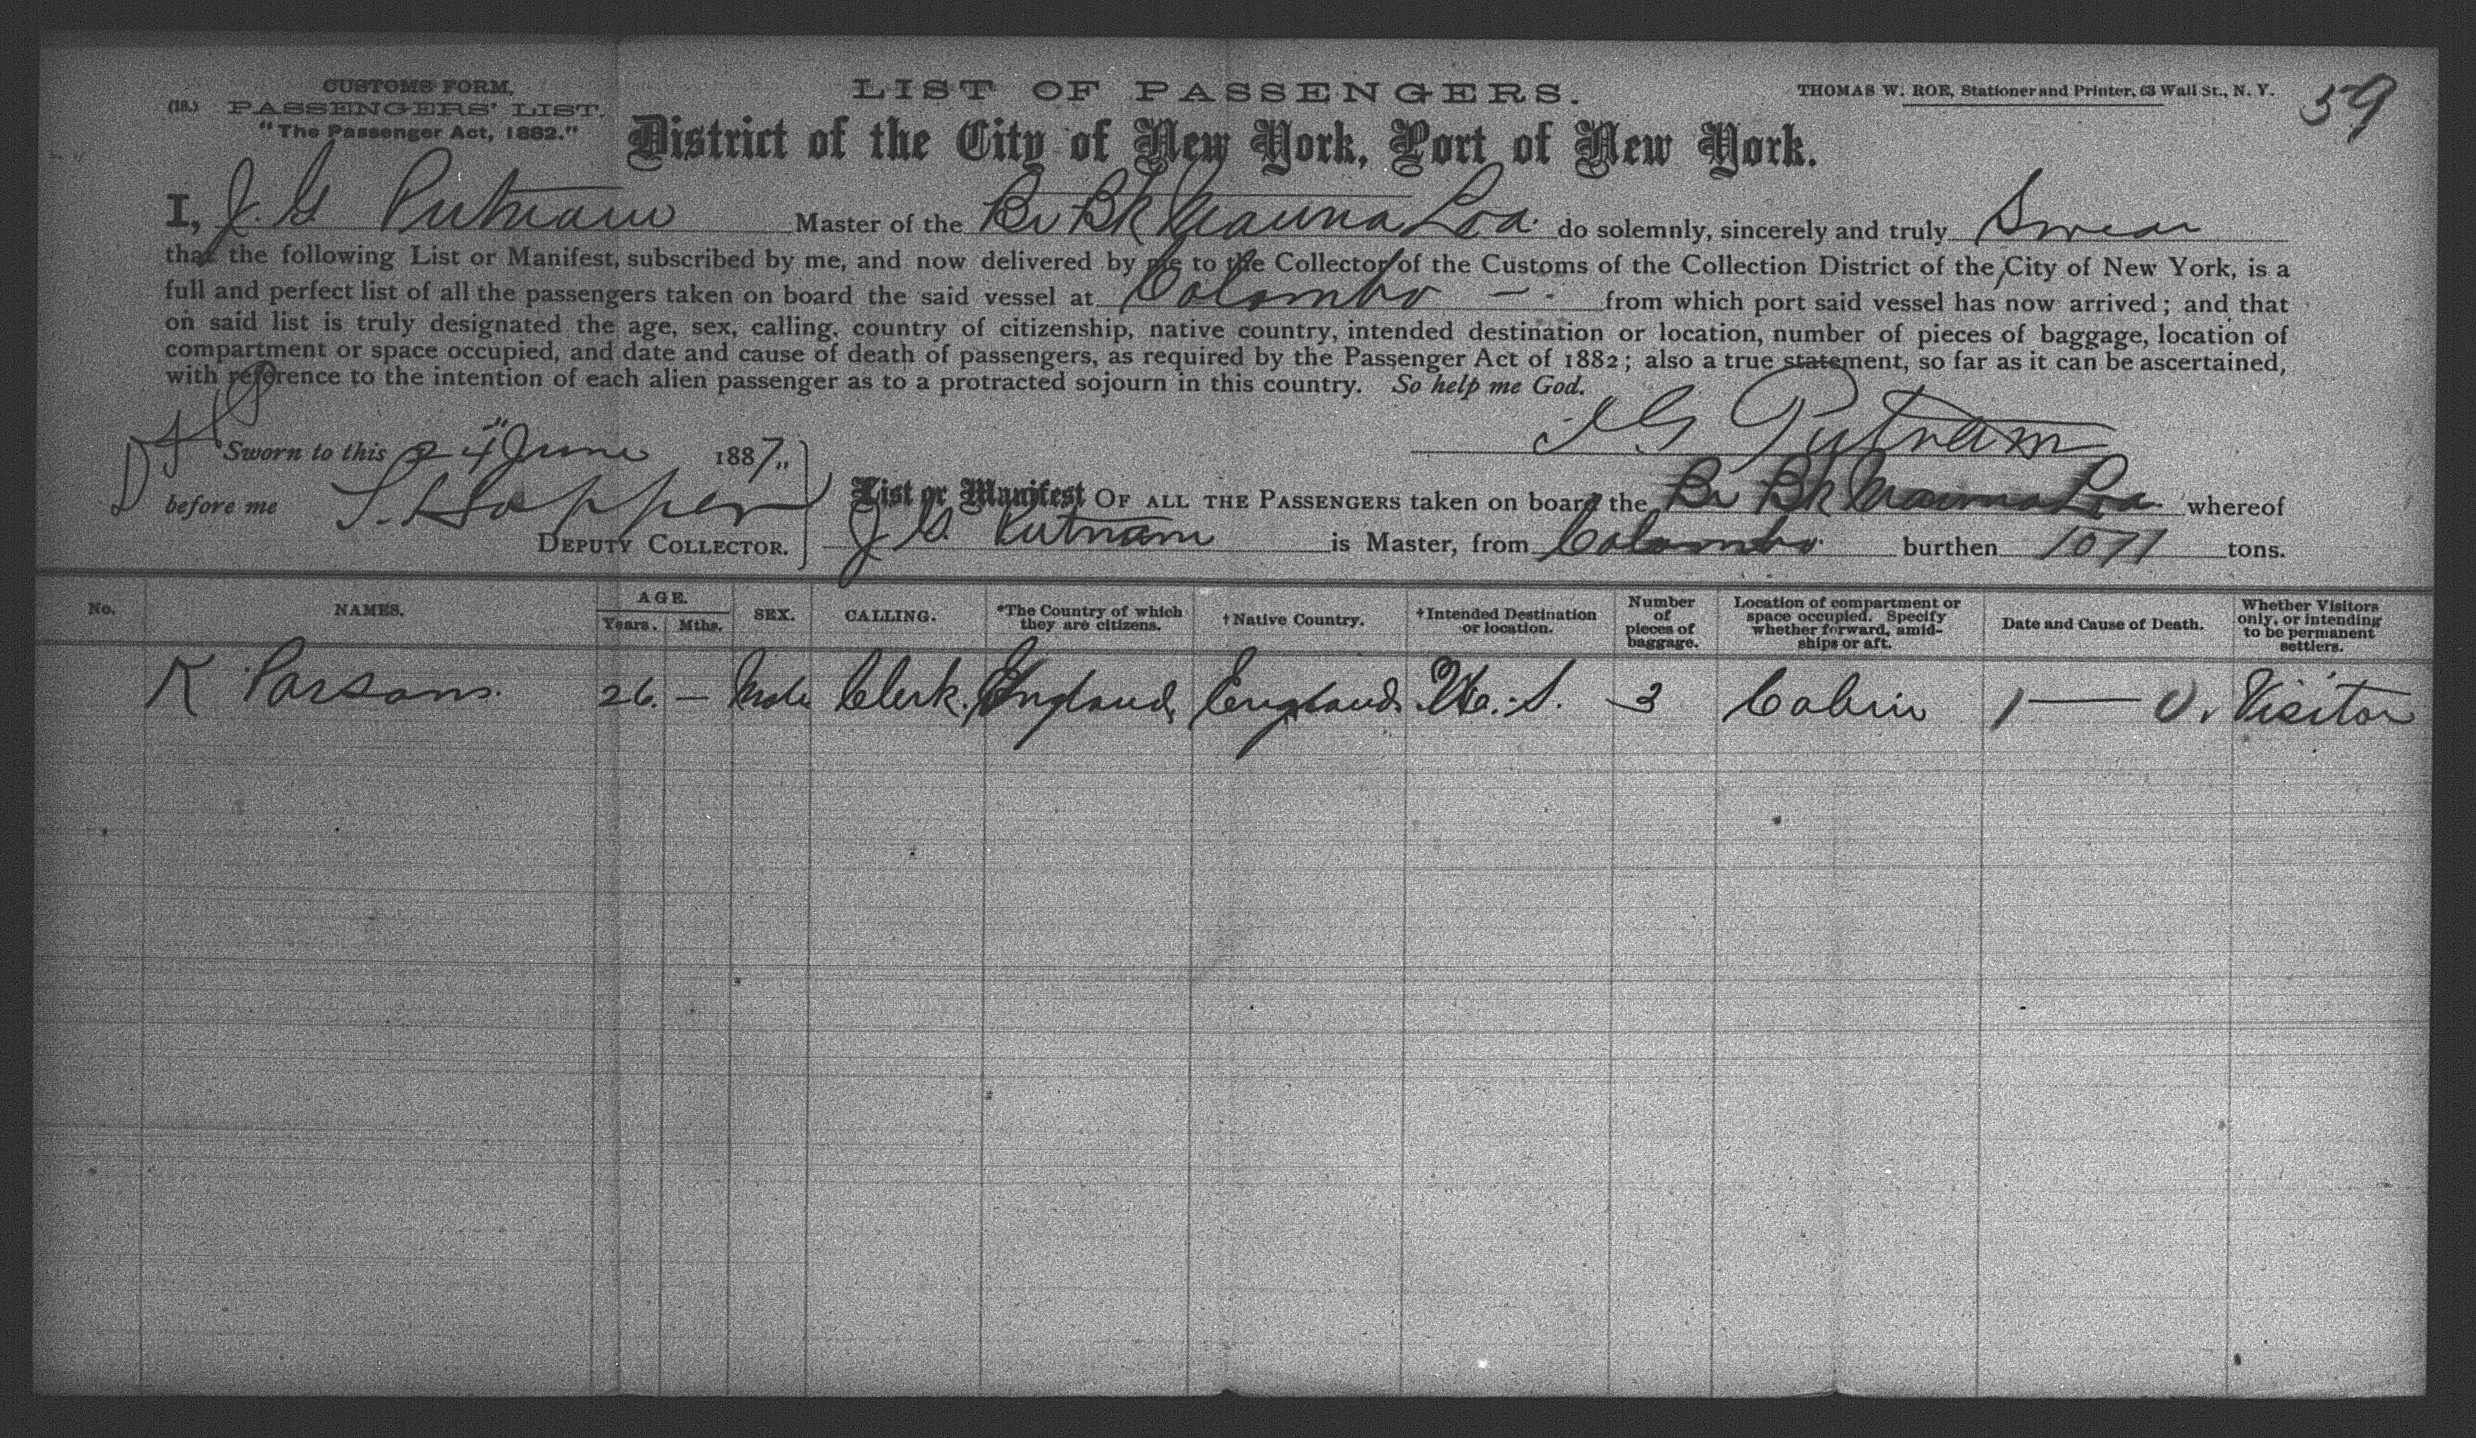 CUSTOMS FORM.
(18.) PASSENGERS' LIST.
"The Passenger Act, 1882."
LIST OF PASSENGERS.
THOMAS W. ROE, Stationer and Printer, 63 Wall St., N. Y.
59
District of the City of New York, Port of New York.
I, J. G Putnam Master of the Br Bk Mauna Loa do solemnly, sincerely and truly Swear
that the following List or Manifest, subscribed by me, and now delivered by me to the Collector of the Customs of the Collection District of the City of New York, is a
full and perfect list of all the passengers taken on board the said vessel at Colombo — from which port said vessel has now arrived; and that
on said list is truly designated the age, sex, calling, country of citizenship, native country, intended destination or location, number of pieces of baggage, location of
compartment or space occupied, and date and cause of death of passengers, as required by the Passenger Act of 1882; also a true statement, so far as it can be ascertained,
with reference to the intention of each alien passenger as to a protracted sojourn in this country. So help me God.
J G Putnam
Sworn to this 24" June 1887
before me
DEPUTY COLLECTOR.
List or Manifest OF ALL THE PASSENGERS taken on board the Br Bk Mauna Loa whereof
J. G. Putnam is Master, from Colombo burthen 1077 tons.
No. NAMES. AGE. Years. Mths. SEX. CALLING. *The Country of which they are citizens. †Native Country. †Intended Destination or location. Number of pieces of baggage. Location of compartment or space occupied. Specify whether forward, amid-ships or aft. Date and Cause of Death. Whether Visitors only, or intending to be permanent settlers.
K Parsons. 26. — Male Clerk. England England U. S. 3 Cabin 1 — 0. Visitor